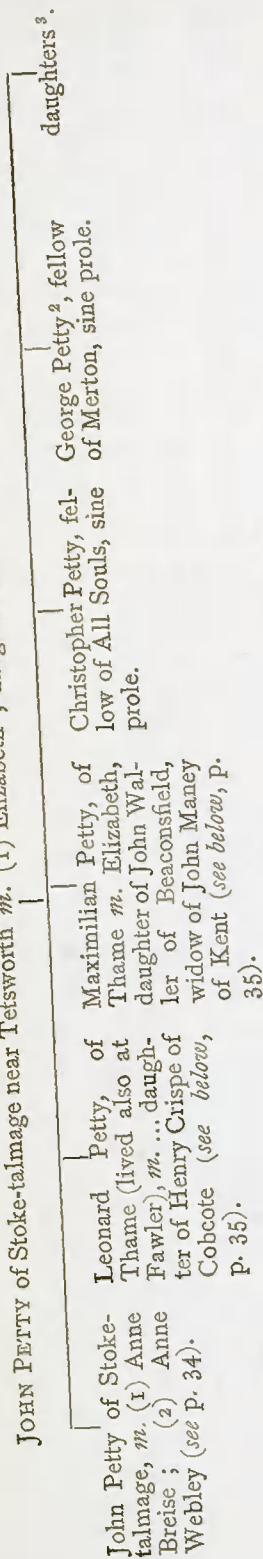 JOHN PETTY of Stoke-talmage near Tetsworth m. (1) Elizabeth
John Petty of Stoke-
talmage, m. (1) Anne
Breise ; (2) Anne
Webley (see p. 34).
Leonard Petty, of
Thame (lived also at
Fawler), m. ... daugh-
ter of Henry Crispe of
Cobcote (see below,
p. 35).
Maximilian Petty, of
Thame m. Elizabeth,
daughter of John Wal-
ler of Beaconsfield,
widow of John Maney
of Kent (see below, p.
35).
Christopher Petty, fel-
low of All Souls, sine
prole.
George Petty 2, fellow
of Merton, sine prole.
daughters 3.